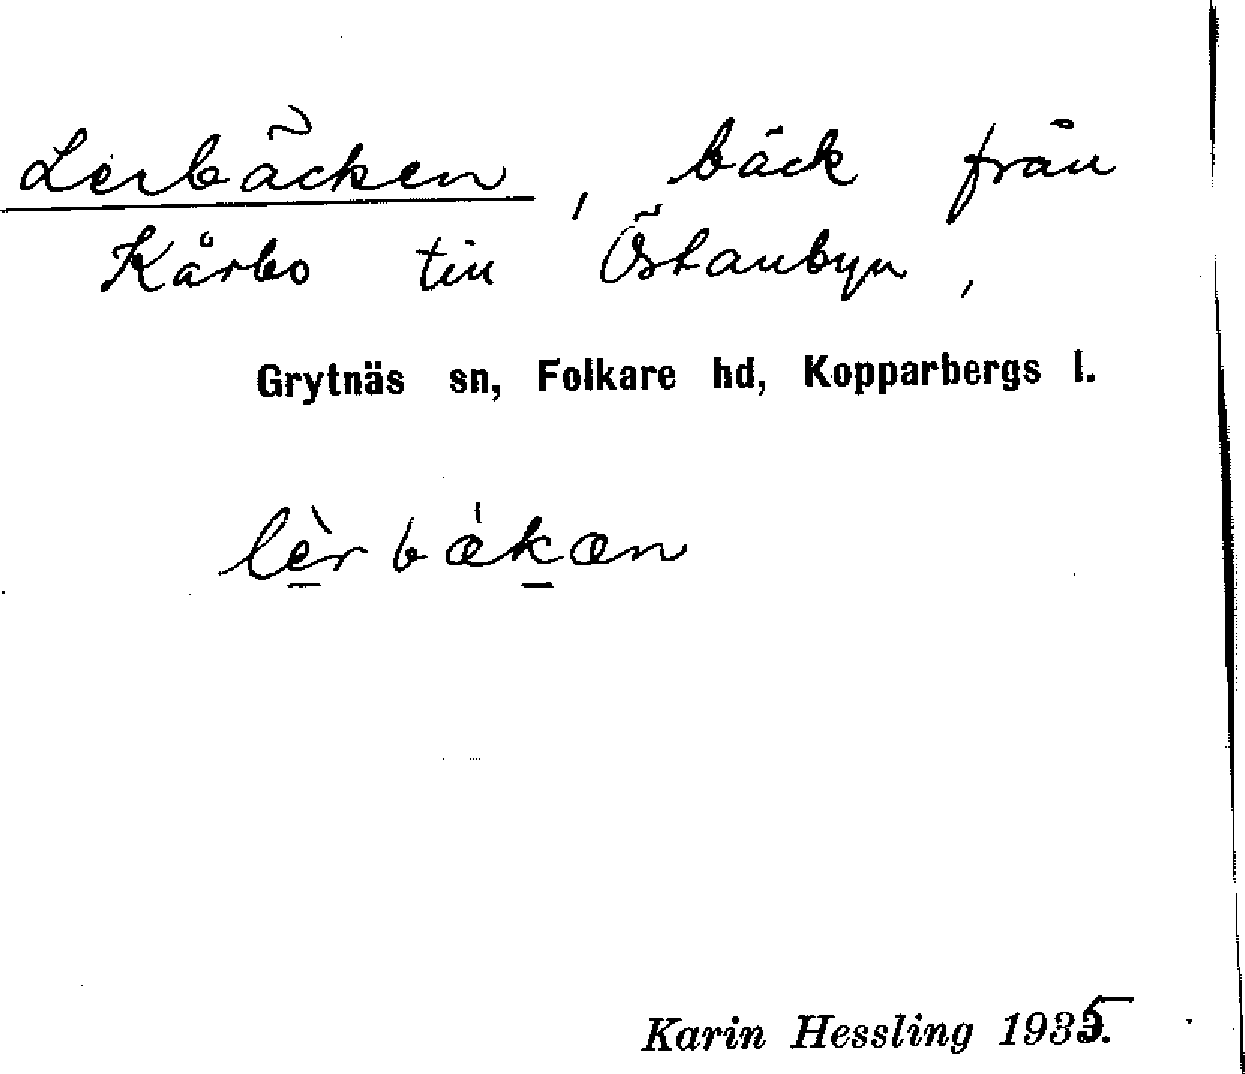 Lerbäcken, bäck från
Kårbo till Östanbyn,
Grytnäs sn, Folkare hd, Kopparbergs l.
lèrbǽkæn
Karin Hessling 1935.